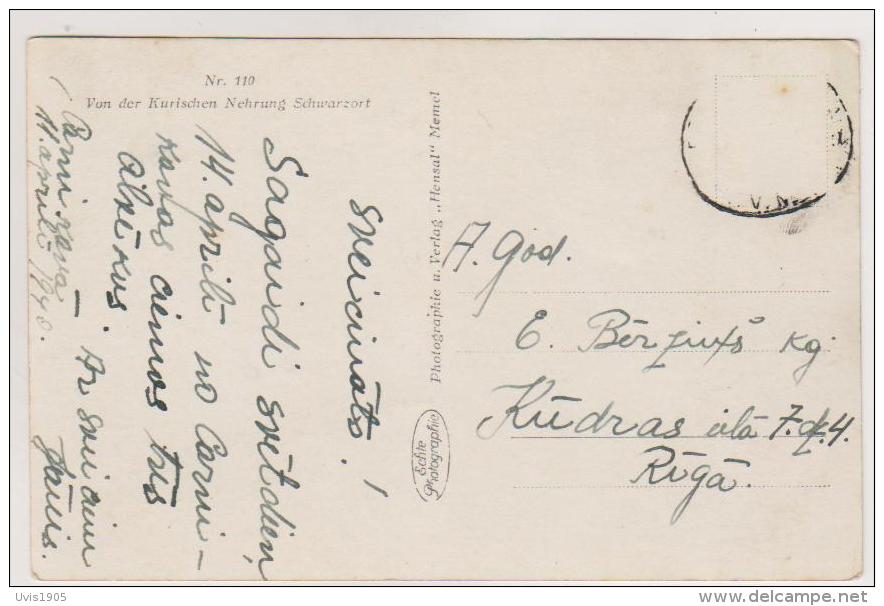 Nr. 110
Von der Kurischen Nehrung Schwarzort
Sveicināts!
Sagaidi svētdien,
14. aprīlī no Carni-
kavas ciemos trīs
Ar sveicieni
Jānis.
11. aprīlī 1940.
Photographie u. Verlag „Hensal" Memel
Echte
Photographie
V. N.
A. god.
E. Bērziņš kg.
Kūdras ielā 7. dz. 4.
Rīgā.
Uvis1905
www.delcampe.net